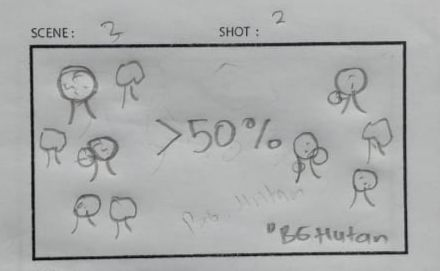 SCENE: 3 SHOT : 2
>50%
"BG Hutan